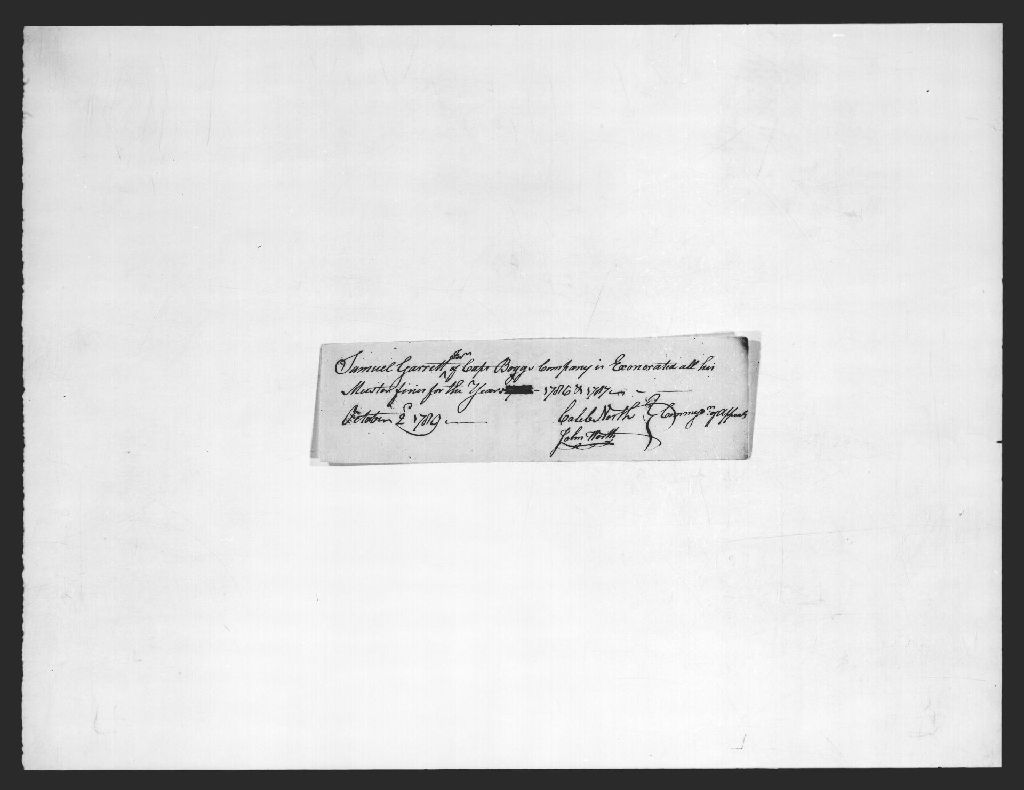 Samuel Garrett Junr of Capt Boggs Company is Exonorated all his
Muster fines for the Years 1786 & 1787
October 2d 1789
Caleb North Commissrs of Appeals
John North